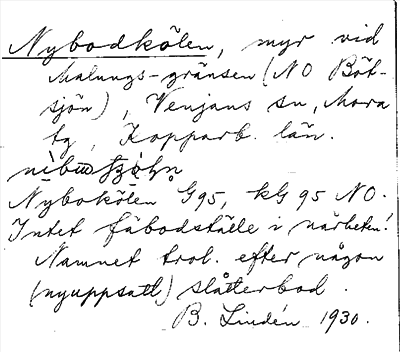 Nybodkölen, myr vid
Malungs-gränsen (NO Böt-
sjön), Venjans sn, Mora
tg, Kopparb. län.
Nybokölen G95, kG 95 NO.
Intet fäbodställe i närheten!
Namnet trol. efter någon
(nyuppsatt) slåtterbod.
B. Lindén 1930.